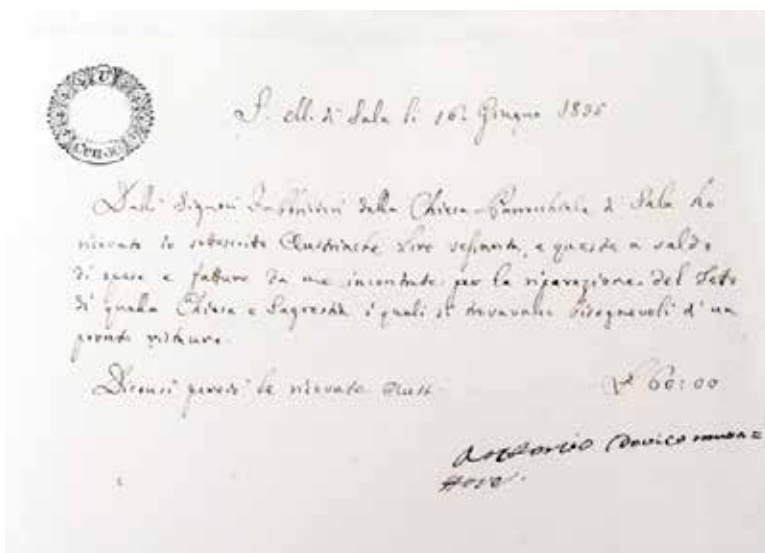 S. M. di Sala li 16. Giugno 1835
Dalli Signori Fabbricieri della Chiesa Parrocchiale di Sala ho
ricevuto io sottoscritto Austriache Lire sessanta, e queste a saldo
di spese e fatture da me incontrate per la riparazione del Teto
di quella Chiesa e Sagrestia i quali si trovavano bisognevoli d'un
pronto ristauro.
Diconsi perciò le ricevute Aust. L. 60:00
Antonio mura=
tore.